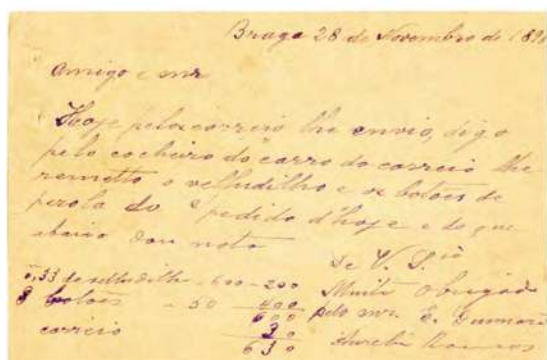 Braga 28 de Novembro de 189
Amigo e snr
Hoje pelo correio lhe envio, digo
pelo cocheiro do carro do correio lhe
remetto o velludilho e os botões de
perola do pedido d'hoje e do que
abaixo dou nota
0,33 de velludilho - 600 - 200
8 botões - 50 400
600
correio 30
630
De V. S.ia
Muito Obrigado
pelo snr. E.
Aurelio